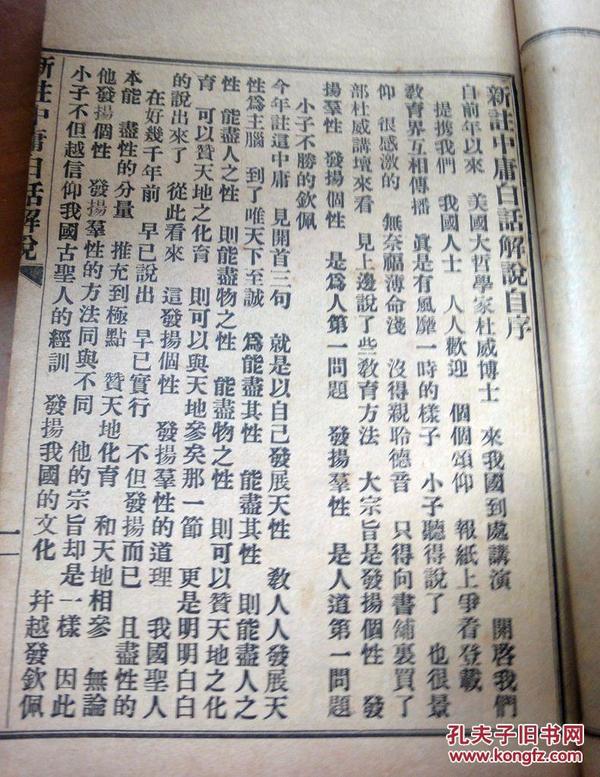 新註中庸白話解說自序
自前年以來　美國大哲學家杜威博士　來我國到處講演　開啓我們
提携我們　我國人士　人人歡迎　個個頌仰　報紙上爭着登載
敎育界互相傳播　眞是有風靡一時的樣子　小子聽得說了　也很景
仰　很感激的　無奈福薄命淺　沒得親聆德音　只得向書鋪裏買了
部杜威講壇來看　見上邊說了些敎育方法　大宗旨是發揚個性　發
揚羣性　發揚個性　是爲人第一問題　發揚羣性　是人道第一問題
小子不勝的欽佩
今年註這中庸　見開首三句　就是以自己發展天性　敎人人發展天
性爲主腦　到了唯天下至誠　爲能盡其性　能盡其性　則能盡人之
性　能盡人之性　則能盡物之性　能盡物之性　則可以贊天地之化
育　可以贊天地之化育　則可以與天地參矣那一節　更是明明白白
的說出來了　從此看來　這發揚個性　發揚羣性的道理　我國聖人
在好幾千年前　早已說出　早已實行　不但發揚而已　且盡性的
本能　盡性的分量　推充到極點　贊天地化育　和天地相參　無論
他發揚個性　發揚羣性的方法同與不同　他的宗旨却是一樣　因此
小子不但越信仰我國古聖人的經訓　發揚我國的文化　幷越發欽佩
新註中庸白話解說
一
孔夫子旧书网
www.kongfz.com